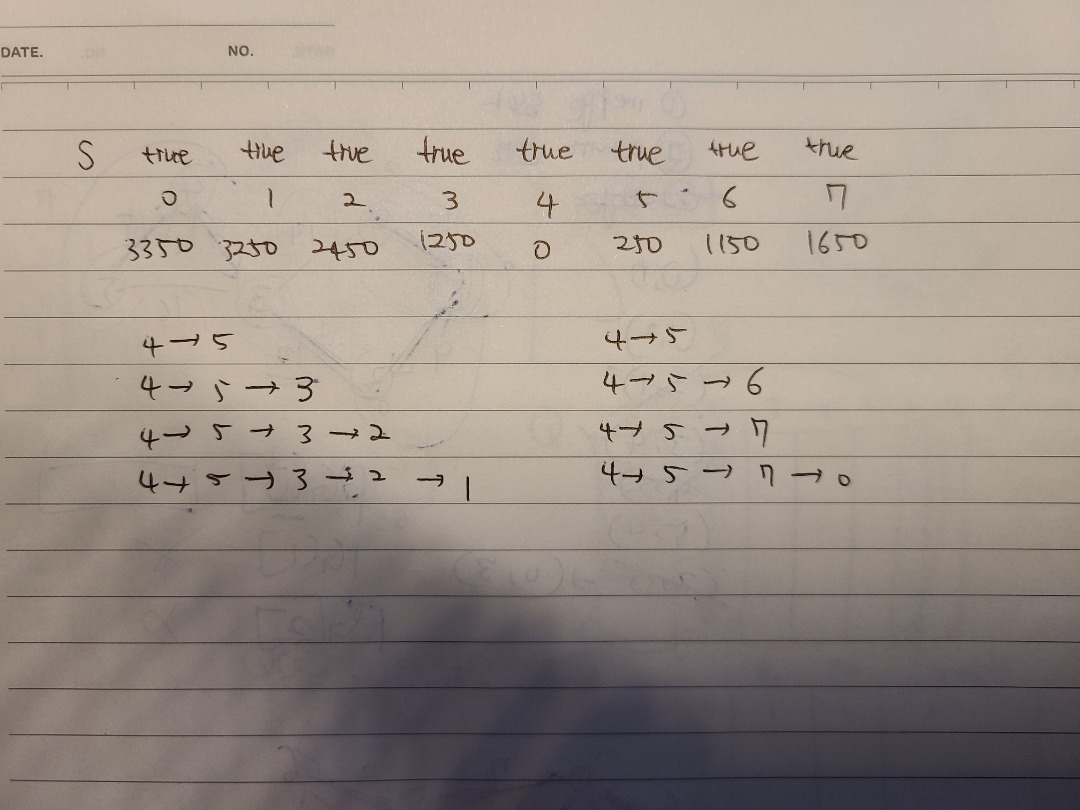 DATE. NO.
S true true true true true true true true
0 1 2 3 4 5 6 7
3350 3250 2450 1250 0 250 1150 1650
4→5 4→5
4→5→3 4→5→6
4→5→3→2 4→5→7
4→5→3→2→1 4→5→7→0